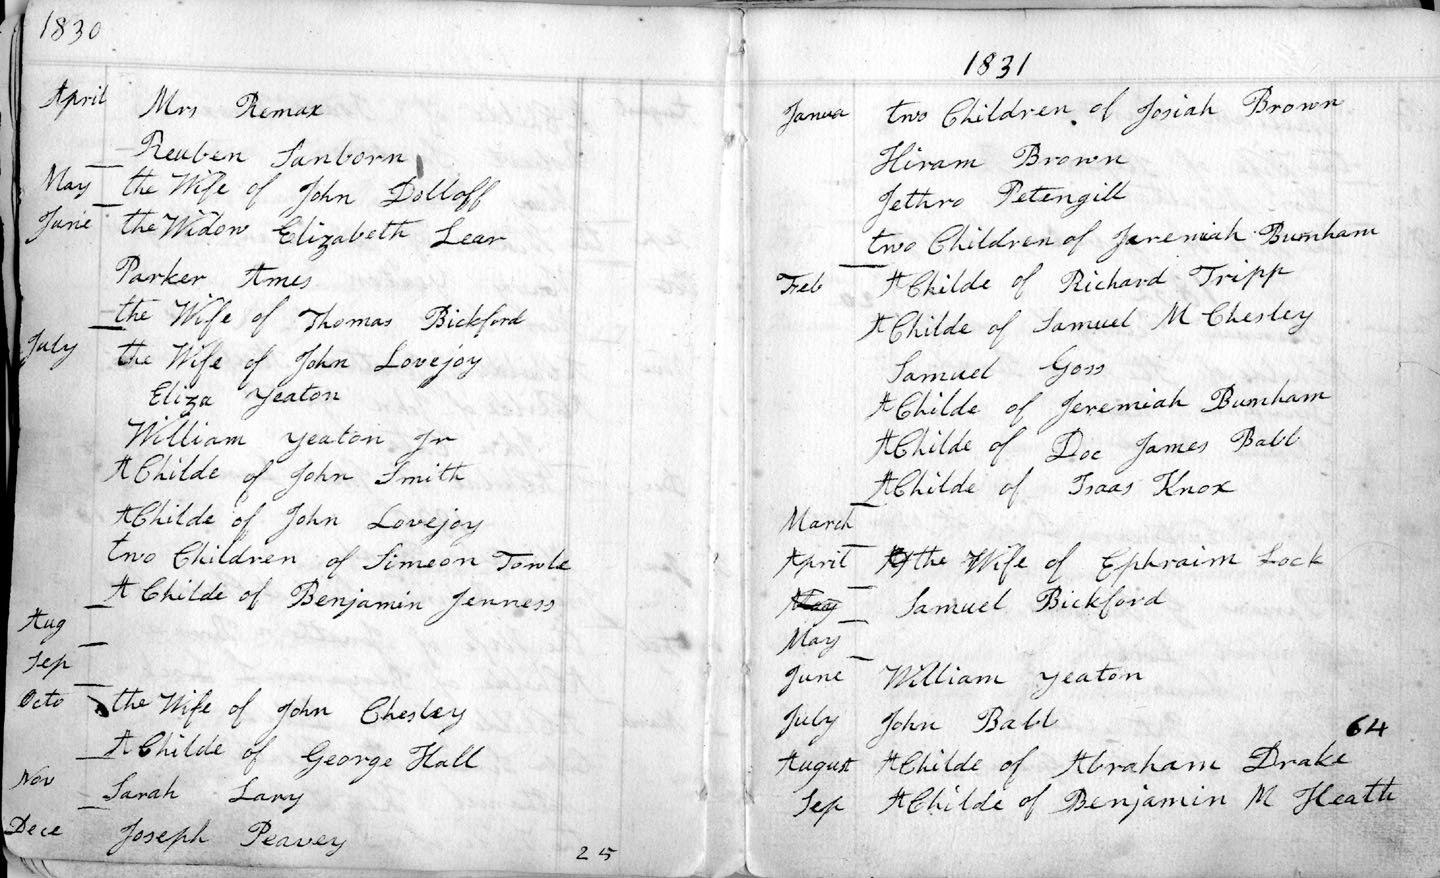 1830
April Mrs Remax
Reuben Sanborn
May the Wife of John Dolloff
June the Widow Elizabeth Lear
Parker Ames
the Wife of Thomas Bickford
July the Wife of John Lovejoy
Eliza Yeaton
William Yeaton Jr
A Childe of John Smith
A Childe of John Lovejoy
two Children of Simeon Towle
A Childe of Benjamin Jenness
Aug
Sep
Octo the Wife of John Chesley
A Childe of George Hall
Nov Sarah Lary
Dece Joseph Peavey
25
1831
Janua two Children of Josiah Brown
Hiram Brown
Jethro Petengill
two Children of Jeremiah Burnham
Feb A Childe of Richard Tripp
A Childe of Samuel M Chesley
Samuel Goss
A Childe of Jeremiah Burnham
A Childe of Doc James Babb
A Childe of Isaas Knox
March
April the Wife of Ephraim Lock
May Samuel Bickford
May
June William Yeaton
July John Babb
64
August A Childe of Abraham Drake
Sep A Childe of Benjamin M Heath